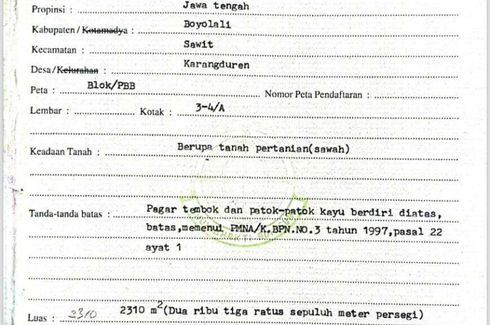 Propinsi : Jawa tengah
Kabupaten / Kotamadya : Boyolali
Kecamatan : Sawit
Desa / Kelurahan : Karangduren
Peta : Blok/PBB Nomor Peta Pendaftaran :
Lembar : Kotak : 3-4/A
Keadaan Tanah : Berupa tanah pertanian(sawah)
Tanda-tanda batas : Pagar tembok dan patok-patok kayu berdiri diatas,
batas,memenui PMNA/K.BPN.NO.3 tahun 1997,pasal 22
ayat 1
Luas : 2310 2310 m²(Dua ribu tiga ratus sepuluh meter persegi)